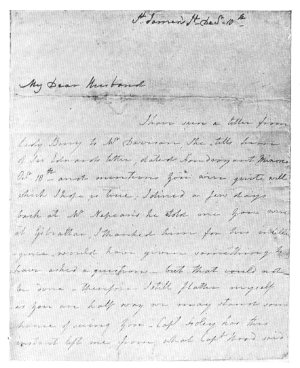 St. James's St. Decr. 10th
My Dear Husband
I have seen a letter from
Lady Berry to Mr Davison She tells him
of Sir Edwards letter, dated
Octr. 18th and mentions You were quite well
which I hope is true. I dined a few days
back at Mr. Nepeans he told me You were
at Gibraltar. I thanked him for his intelli
gence. would have given something to
have asked a question. but that would not
be done. therefore I still flatter myself
as You are half way we may stand some
chance of seeing You. Capt. has this
moment left me from what Capt. Hood said